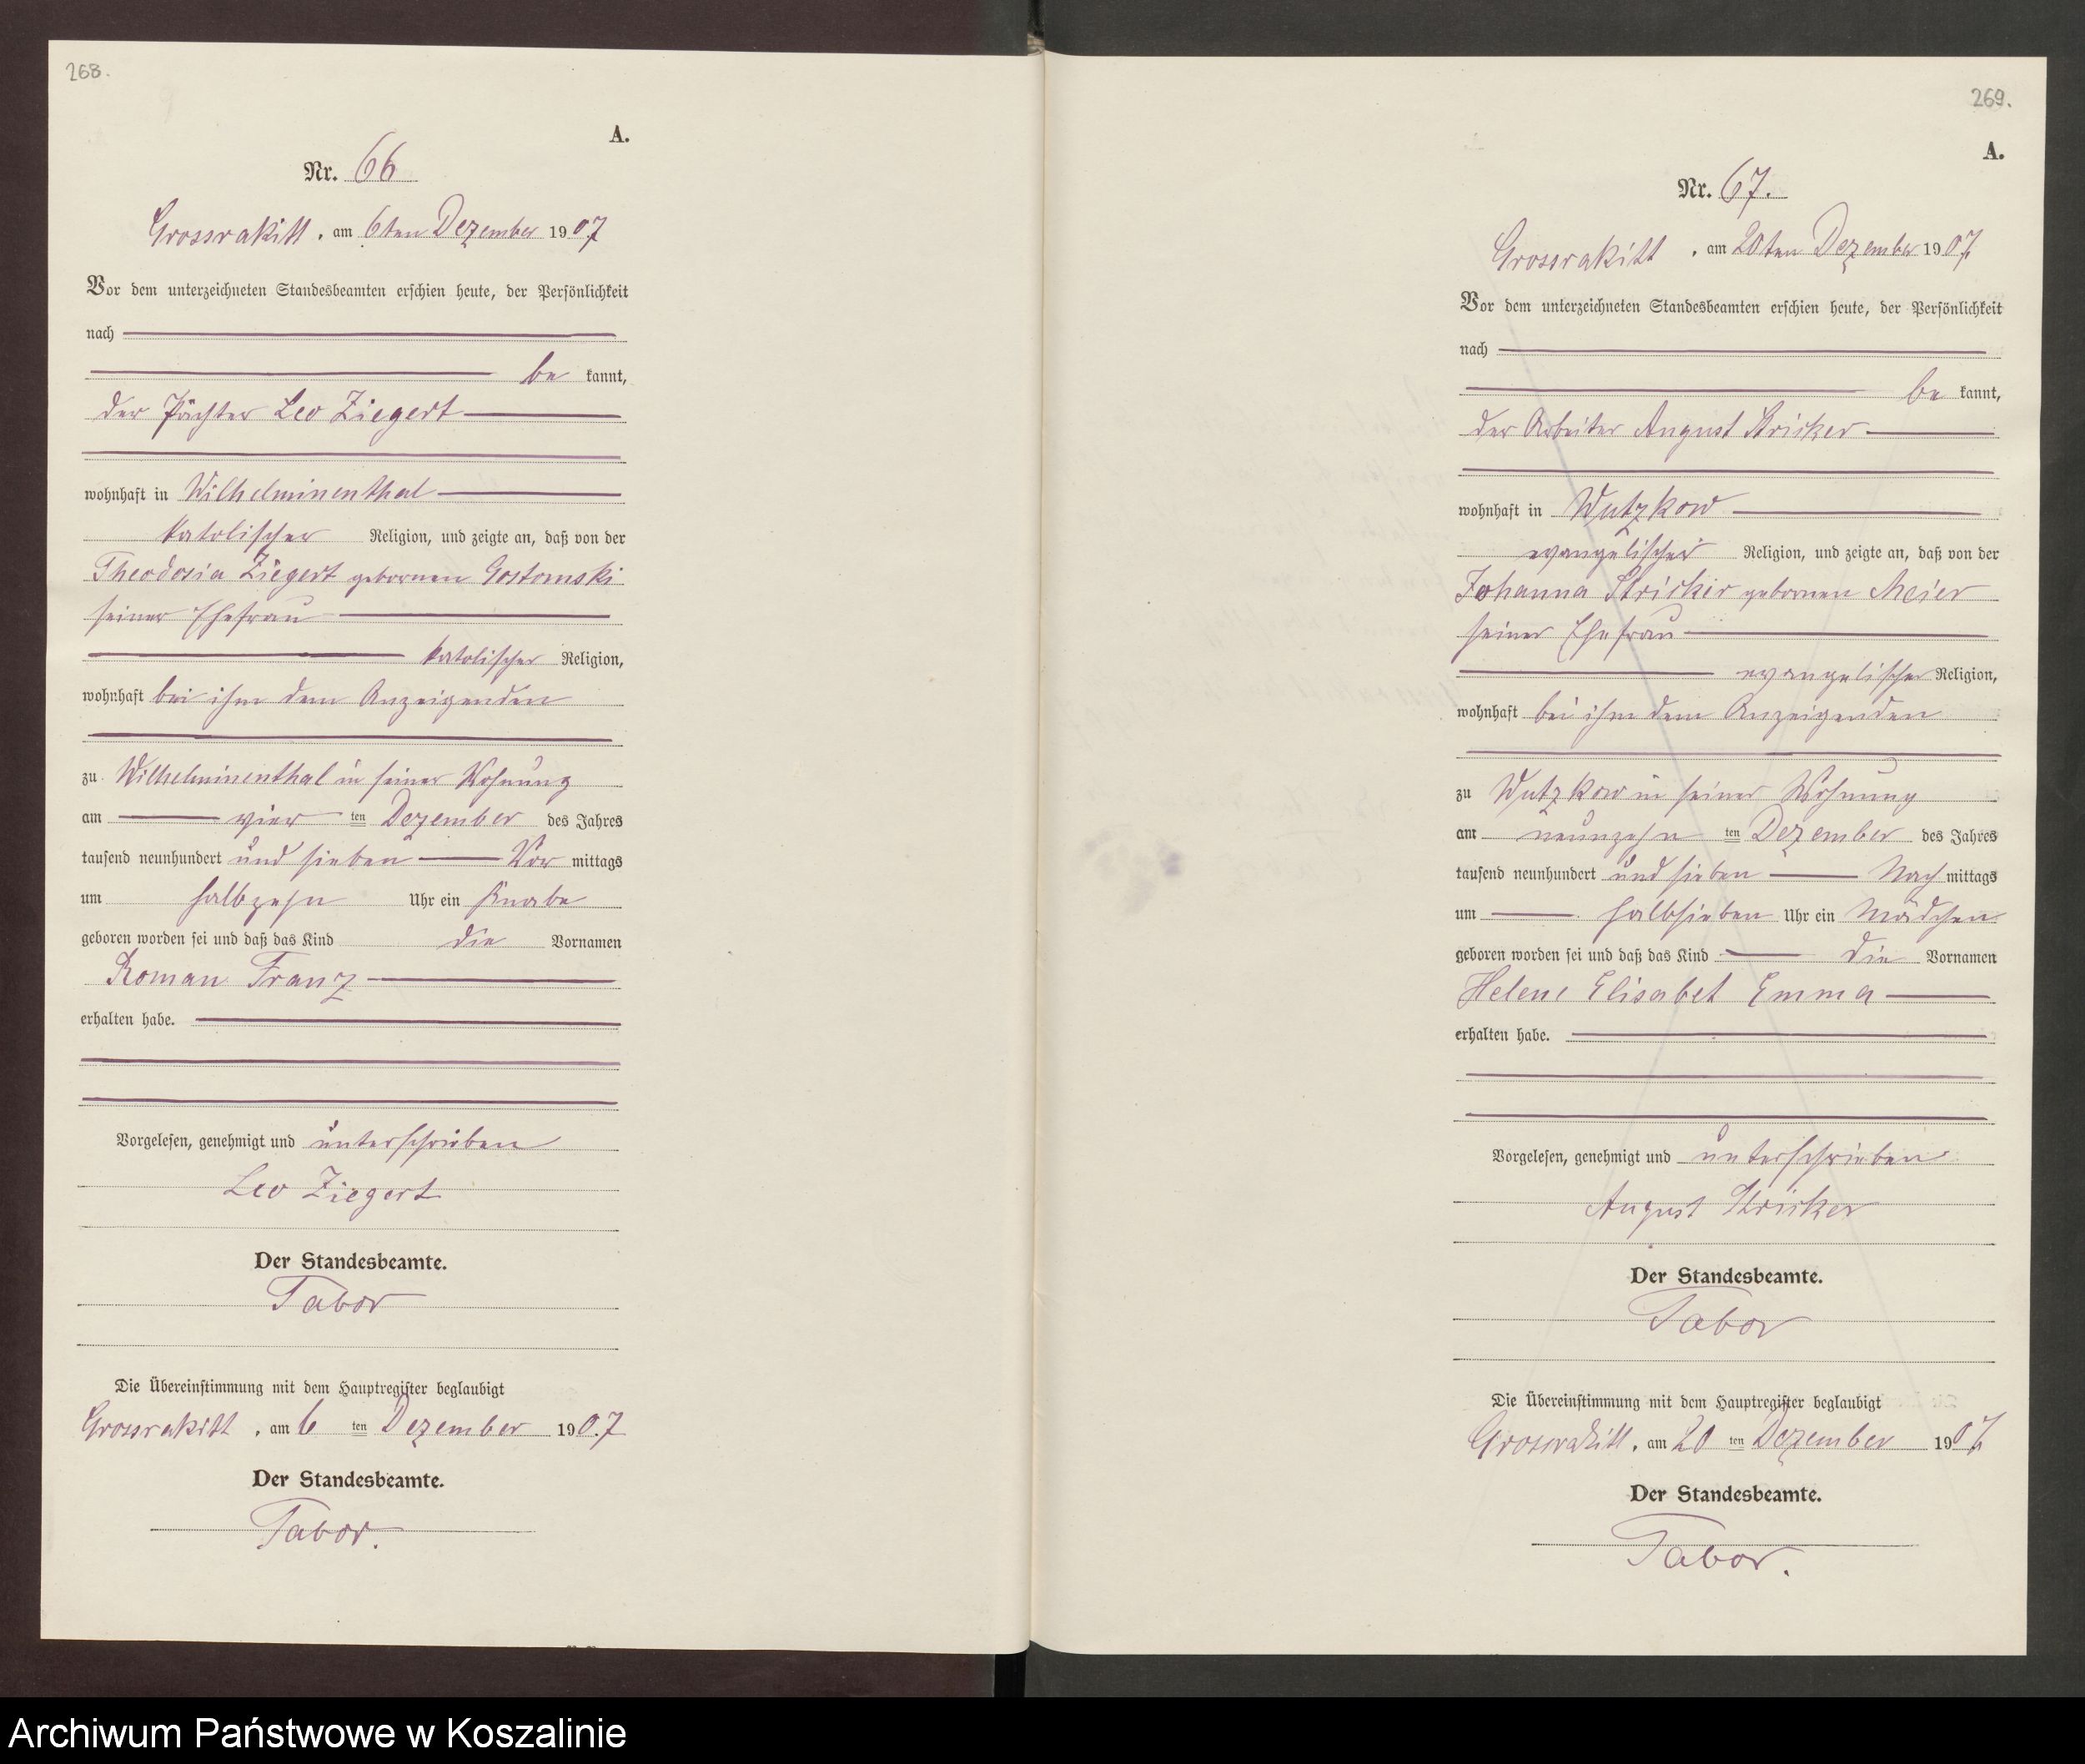 268.
A.
Nr. 66
Grossrakitt, am 6ten Dezember 1907
Vor dem unterzeichneten Standesbeamten erschien heute, der Persönlichkeit
nach
be kannt,
der Pächter Leo Ziegert
wohnhaft in Wilhelminenthal
katolischer Religion, und zeigte an, daß von der
Theodosia Ziegert gebornen Gostomski
seiner Ehefrau
katolischer Religion,
wohnhaft bei ihm dem Anzeigenden
zu Wilhelminenthal in seiner Wohnung
am vier ten Dezember des Jahres
tausend neunhundert und sieben Vor mittags
um halbzehn Uhr ein Knabe
geboren worden sei und daß das Kind die Vornamen
Roman Franz
erhalten habe.
Vorgelesen, genehmigt und unterschrieben
Leo Ziegert
Der Standesbeamte.
Tabor
Die Übereinstimmung mit dem Hauptregister beglaubigt
Grossrakitt, am 6 ten Dezember 190.7
Der Standesbeamte.
Tabor.
269.
A.
Nr. 67.
Grossrakitt, am 20ten Dezember 1907
Vor dem unterzeichneten Standesbeamten erschien heute, der Persönlichkeit
nach
be kannt,
der Arbeiter August Stricker
wohnhaft in Wutzkow
evangelischer Religion, und zeigte an, daß von der
Johanna Stricker gebornen Meier
seiner Ehefrau
evangelischer Religion,
wohnhaft bei ihm dem Anzeigenden
zu Wutzkow in seiner Wohnung
am neunzehn ten Dezember des Jahres
tausend neunhundert und sieben Nach mittags
um halbsieben Uhr ein Mädchen
geboren worden sei und daß das Kind die Vornamen
Helene Elisabet Emma
erhalten habe.
Vorgelesen, genehmigt und unterschrieben
August Stricker
Der Standesbeamte.
Tabor
Die Übereinstimmung mit dem Hauptregister beglaubigt
Grossrakitt, am 20 ten Dezember 1907
Der Standesbeamte.
Tabor.
Archiwum Państwowe w Koszalinie